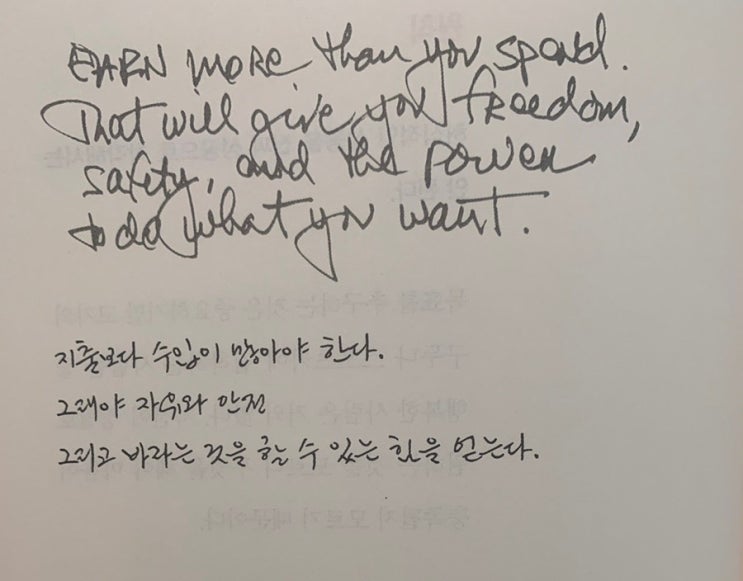 EARN more than you spend.
That will give you freedom,
safety, and the power
to do what you want.
지출보다 수입이 많아야 한다.
그래야 자유와 안전
그리고 바라는 것을 할 수 있는 힘을 얻는다.